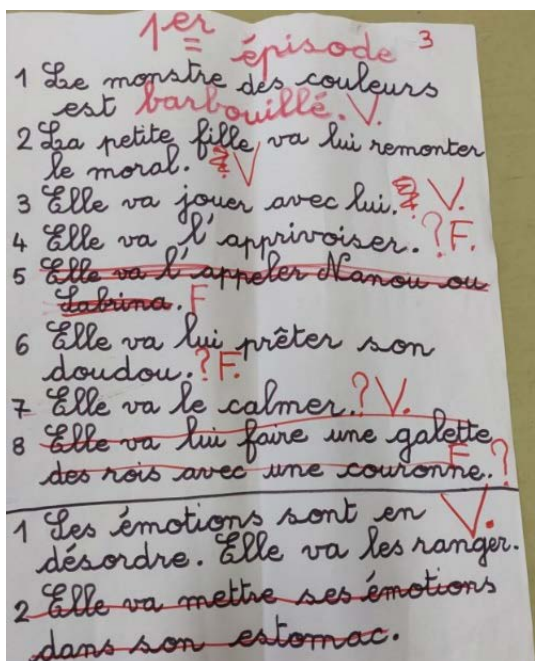 1er épisode 3
1 Le monstre des couleurs
est barbouillé. V.
2 La petite fille va lui remonter
le moral. V
3 Elle va jouer avec lui. V.
4 Elle va l'apprivoiser. ? F.
5 Elle va l'appeler Nanou ou
Sabrina. F
6 Elle va lui prêter son
doudou. ? F.
7 Elle va le calmer. ? V.
8 Elle va lui faire une galette
des rois avec une couronne. F ?
1 Les émotions sont en V.
désordre. Elle va les ranger.
2 Elle va mettre ses émotions
dans son estomac.